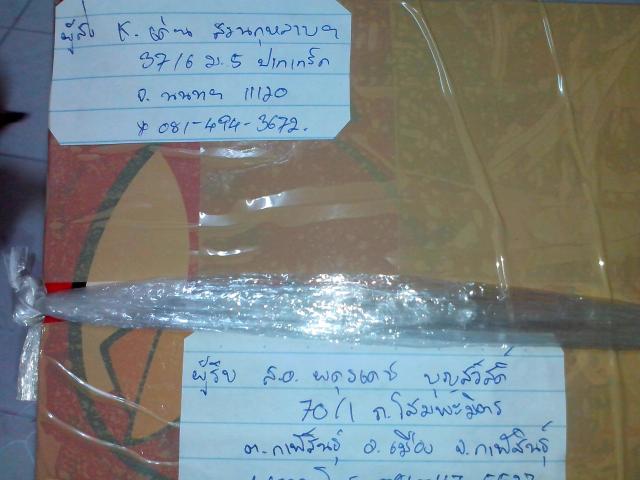 ผู้ส่ง K. เด่น สวนกุหลาบฯ
37/6 ม.5 ปากเกร็ด
จ. นนทฯ 11120
* 081-494-3672.
ผู้รับ ส.อ. บุญสวัสดิ์
70/1 ถ.โสมพะมิตร
ต.กาฬสินธุ์ อ.เมือง จ.กาฬสินธุ์